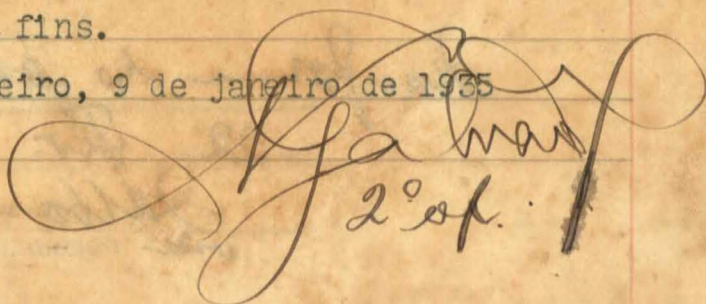 fins.
eiro, 9 de janeiro de 1935
2º of.